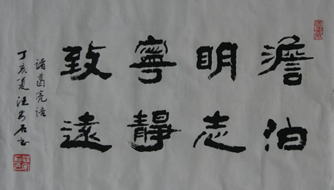 澹泊
明志
寧靜
致遠
諸葛亮語
丁亥夏汪